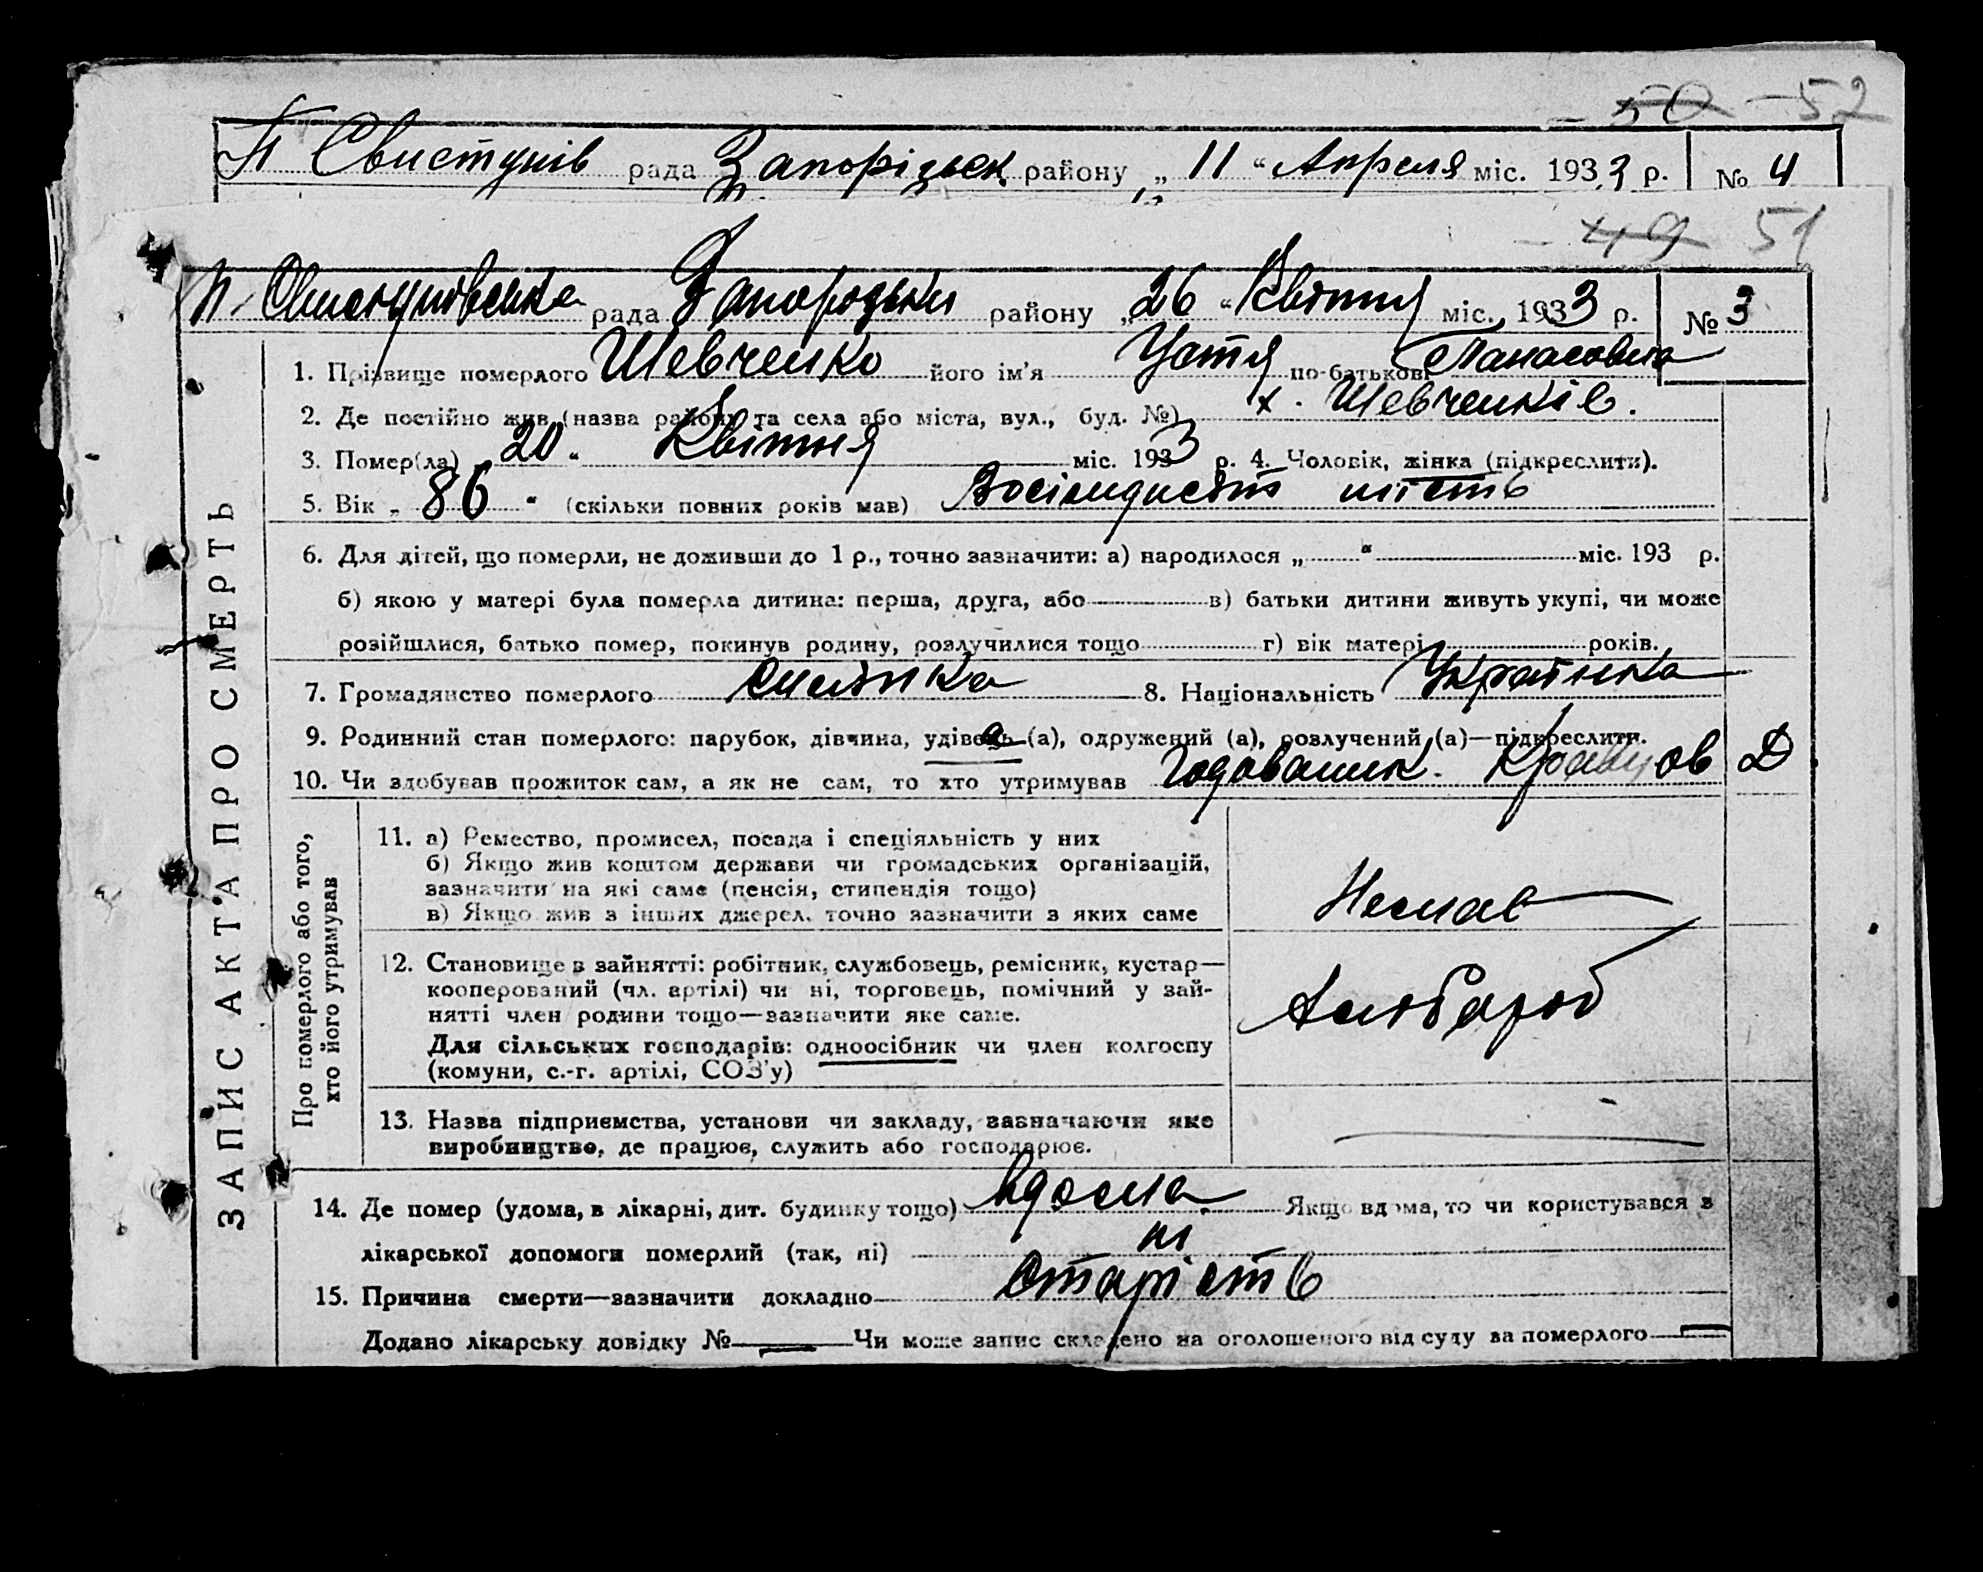 - 50 - 52
П Свистунів рада Запорізьк району „ 11 “ Апреля міс. 1933 р. № 4
- 49 51
П. Свистунівська рада Запорізьки району „26“ Квітня міс. 1933 р. № 3
1. Прізвище померлого Шевченко його ім’я Устя по-батькові Панасовна
2. Де постійно жив (назва району та села або міста, вул., буд. №) х. Шевченків.
3. Помер(ла) „20“ Квітня міс. 1933 р. 4. Чоловік, жінка (підкреслити).
5. Вік „86“ (скільки повних років мав) Восімдисят шість
6. Для дітей, що померли, не доживши до 1 р., точно зазначити: а) народилося „ “ міс. 193 р.
б) якою у матері була померла дитина: перша, друга, або в) батьки дитини живуть укупі, чи може
розійшлися, батько помер, покинув родину, розлучилися тощо г) вік матері років.
7. Громадянство померлого 8. Національність Українка
9. Родинний стан померлого: парубок, дівчина, удівець (а), одружений (а), розлучений (а)—підкреслити.
10. Чи здобував прожиток сам, а як не сам, то хто утримував Годованик. Д
ЗАПИС АКТА ПРО СМЕРТЬ
Про померлого або того,
хто його утримував
11. а) Ремество, промисел, посада і спеціяльність у них
б) Якщо жив коштом держави чи громадських організацій,
зазначити на які саме (пенсія, стипендія тощо)
в) Якщо жив з інших джерел, точно зазначити з яких саме
Немає
12. Становище в зайнятті: робітник, службовець, ремісник, кустар—
кооперований (чл. артілі) чи ні, торговець, помічний у зай-
нятті член родини тощо—зазначити яке саме.
Для сільських господарів: одноосібник чи член колгоспу
(комуни, с.-г. артілі, СОЗ’у)
Хлібороб
13. Назва підприємства, установи чи закладу, зазначаючи яке
виробництво, де працює, служить або господарює.
14. Де помер (удома, в лікарні, дит. будинку тощо) вдома Якщо вдома, то чи користувався з
лікарської допомоги померлий (так, ні) ні
15. Причина смерти—зазначити докладно старість
Додано лікарську довідку № — Чи може запис складено на оголошеного від суду за померлого —